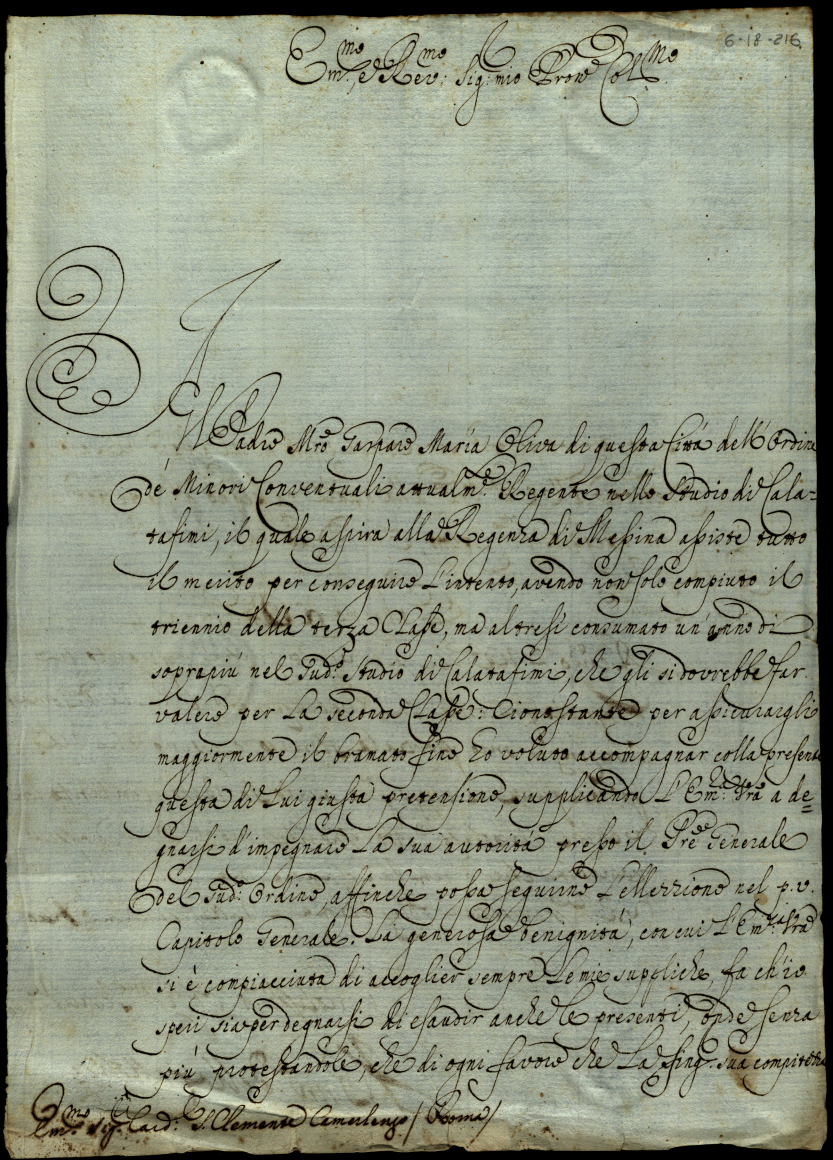 6-18-216
Em.mo e Rev.mo Sig: mio Prone Col.mo
Il Padre Mro Gaspare Maria Oliva di questa Città dell'Ordine
de' Minori Conventuali attualm.e Regente nello Studio di Cala=
tafimi, il quale aspira alla Regenza di Messina assiste tutto
il merito per conseguire l'intento, avendo non solo compiuto il
triennio della terza Classe, ma altresì consumato un'anno di
soprapiù nel sud.o Studio di Calatafimi, che gli si dovrebbe far
valere per la seconda Classe: Cionostante per assicurargli
maggiormente il bramato fine ho voluto accompagnar colla presente
questa di Lui giusta pretensione, supplicando l'Em.za Vra a de=
gnarsi d'impegnare la sua autorità presso il Pre Generale
del sud.o Ordine, affinche possa seguirne l'ellezzione nel p.v.
Capitolo Generale. La generosa benignità, con cui l'Em.za Vra
si è compiacciuta di accoglier sempre le mie suppliche, fa ch'io
speri sia per degnarsi di esaudir anche le presenti, onde senza
più protestandole, che di ogni favore che la sing. sua compitezza
Em.mo Sig. Card. S. Clemente Camerlengo / Roma /